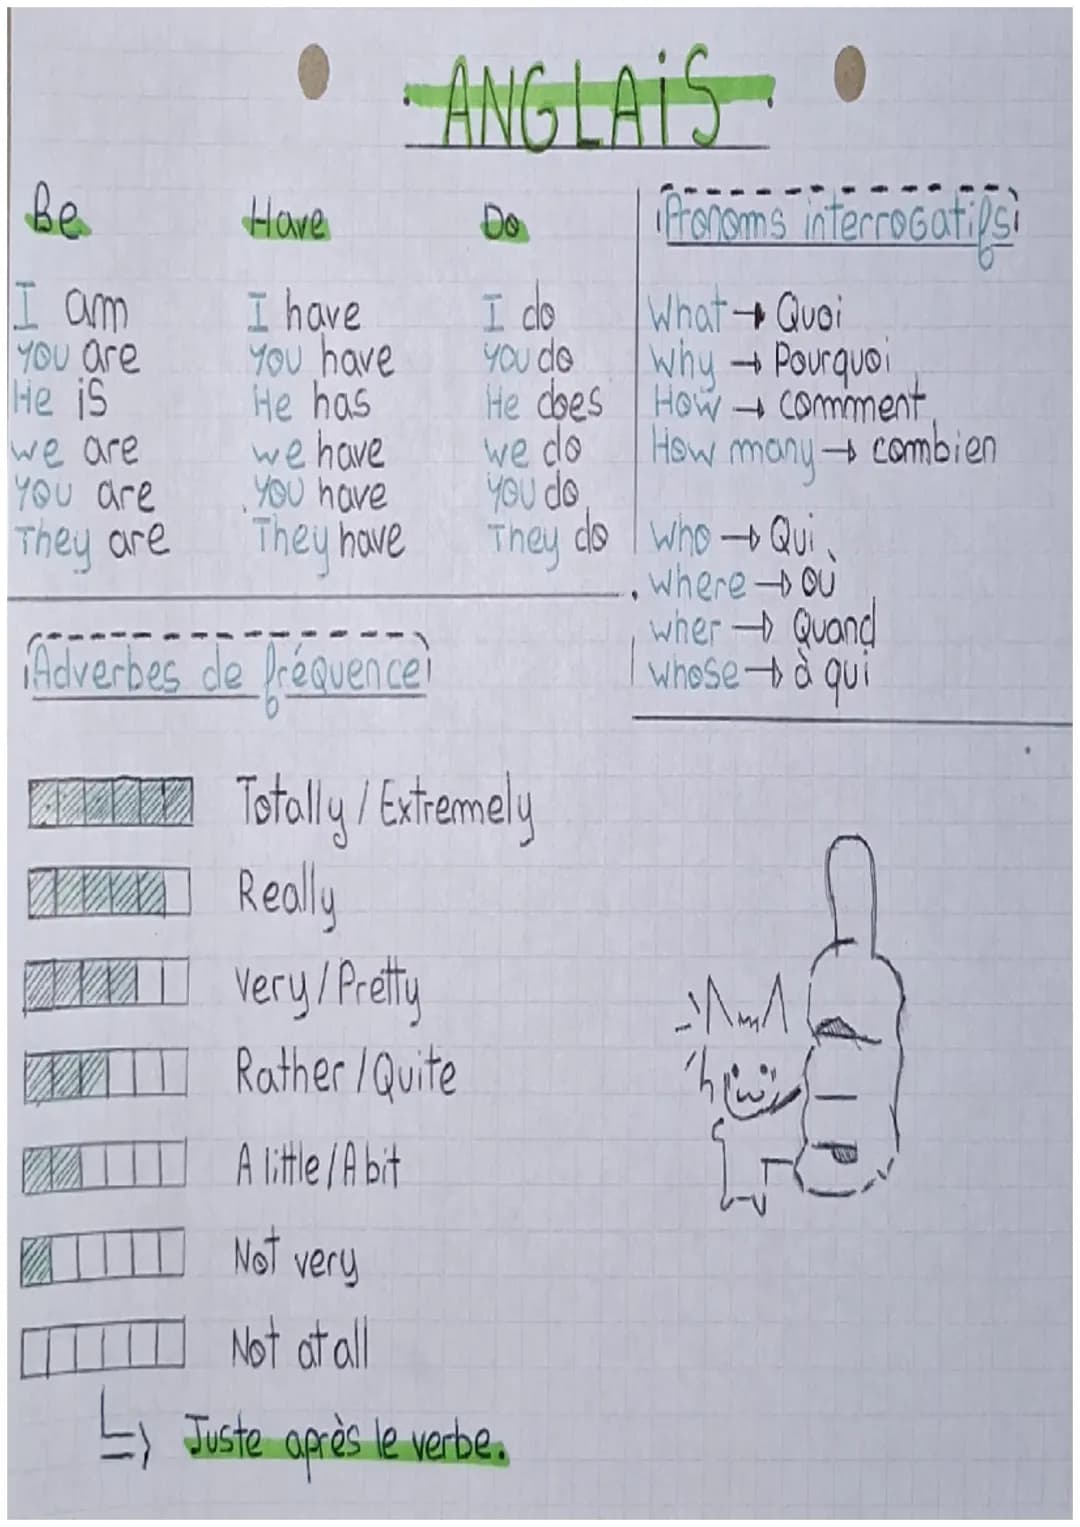 ANGLAIS
Be
I am
You are
He is
we are
You are
They are
Have
I have
You have
He has
we have
You have
They have
Do
I do
You do
He does
we do
You do
They do
Pronoms interrogatifs
What → Quoi
Why → Pourquoi
How → comment
How many → combien
Who → Qui
where → où
wher → Quand
whose → à qui
Adverbes de fréquence
Totally / Extremely
Really
very / Pretty
Rather / Quite
A little / A bit
Not very
Not at all
Juste après le verbe.